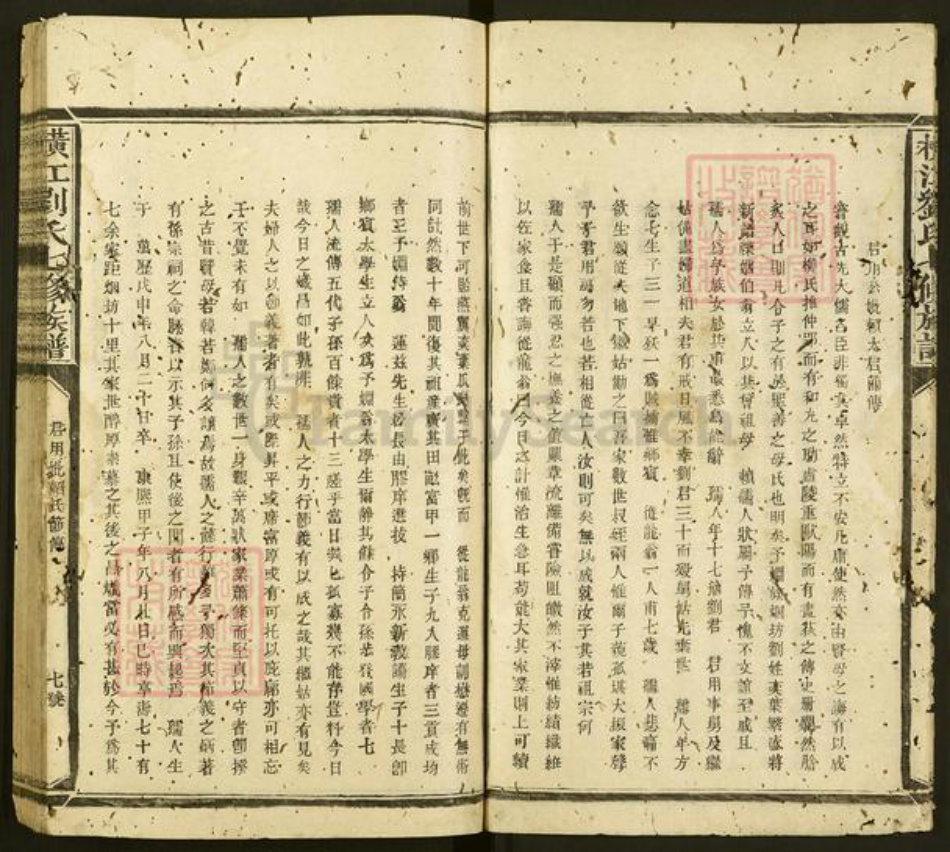 君用公妣賴太君節傳
嘗觀古先大儒名臣非獨其卓然特立不安凡庸使然亦由賢母之海有以成
之耳如橫氏推仲郢而有和丸之助盧陵重歐陽而有畫荻之傳史冊爛然膾
炙人口則凡令子之有是聖善之母氏也明矣予姻族烟坊劉姓奕葉繁滋將
新譜牒姻伯翁立人以其曾祖母 賴孺人狀屬予傳予愧不文誼至戚且
孺人為予族女於其事最悉烏能辭 孺人年十七適劉君 君用事舅及繼
姑備盡婦道相夫君有戒旦風不幸劉君三十而歿舅姑先棄世 孺人年方
念七生子三一早夭一為賊擄維鄉賓 從龍翁一人甫七歲 孺人悲痛不
欲生願從夫地下繼姑勸之曰吾家數世叔姪兩人惟爾子薤孤堪大振家聲
予乎君用碼勿若也若相從亡人汝則可矣無以成就汝子其若祖宗何
孺人于是顧而強忍之撫養之值鼎革流離備嘗險阻皦然不滓惟紡績織維
以佐家食且書誨從龍翁曰今日之計惟治生急耳苟能大其家業則上可續
前世下可貽燕翼奕葉瓜瓞肇于此矣既而 從龍翁克遵母訓懋遷有無術
同計然數十年間復其祖產廣其田畝富甲一鄉生子九人膠庠者三貢成均
者王予婣待翁 蓮茲先生居長由膠庠進技 持簡永新教諭生子十長即
鄉賓太學生立人女為予嬭翁太學生爾靜其餘令子令孫登國學者七
孺人流傳五代子孫百餘貴者十三嗟乎當日煢煢孤寡幾不能存豈料今日
哉今日之熾昌如此孰非 孺人之力行節義有以成之哉其繼姑亦有見矣
夫婦人之以節義著者有矣或際昇平或席富厚或有可托以庇廕亦可相忘
于不覺未有如 孺人之數世一身艱辛萬狀家業蕭條而堅貞以守者卽揆
之古昔賢母若韓若鄭何多讓焉故孺人之懿行筆予獨次其節義之炳著
有係宗祠之命脉者以示其子孫且使後之聞者有所感而興起焉 孺人生
于 萬歷戊申年八月二十日卒 康熙甲子年八月廿日巳時享壽七十有
七余家距烟坊十里其家世醇厚素慕之其後之昌熾當必有甚於今予為其
橫江劉氏七修族譜
君用妣賴氏節傳
七號